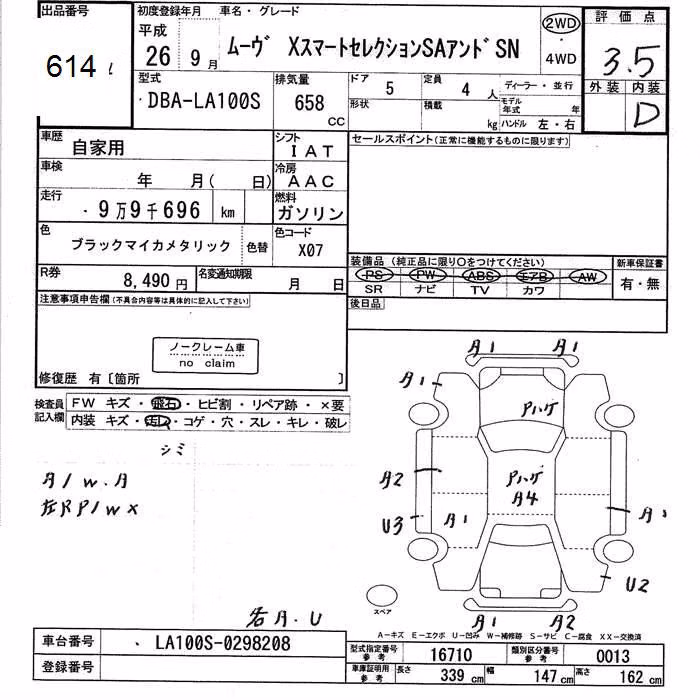 出品番号
614
初度登録年月 車名・グレード
平成
26年 9月 ムーヴ XスマートセレクションSAアンドSN
2WD
・
4WD
評価点
3.5
外装 内装
D
型式
・DBA-LA100S
排気量
658
CC
ドア 5
定員 4 人
ディーラー・並行
形状
積載 kg
モデル年式 年
ハンドル 左・右
車歴
自家用
シフト
IAT
車検
年 月( 日)
冷房
AAC
走行
・9万9千696 km
燃料
ガソリン
色
ブラックマイカメタリック
色替
色コード
X07
R券
8,490円
名変通知期限
月 日
セールスポイント(正常に機能するものに限ります)
装備品(純正品に限り○をつけてください)
PS PW ABS エアB AW
SR ナビ TV カワ
新車保証書
有・無
後日品
注意事項申告欄(不具合内容等は具体的に記入して下さい)
ノークレーム車
no claim
修復歴 有〔箇所 〕
検査員
記入欄
FW キズ・飛石・ヒビ割・リペア跡・×要
内装 キズ・汚レ・コゲ・穴・スレ・キレ・破レ
シミ
A1 A1
A1
Pハゲ
A2
Pハゲ
A4
U3
A1
U2
A1 A2
スペア
A-キズ E-エクボ U-凹み W-補修跡 S-サビ C-腐食 XX-交換済
車台番号
・ LA100S-0298208
登録番号
型式指定番号
参考
16710
類別区分番号
参考
0013
車庫証明用
参考
長さ 339 cm
幅 147 cm
高さ 162 cm